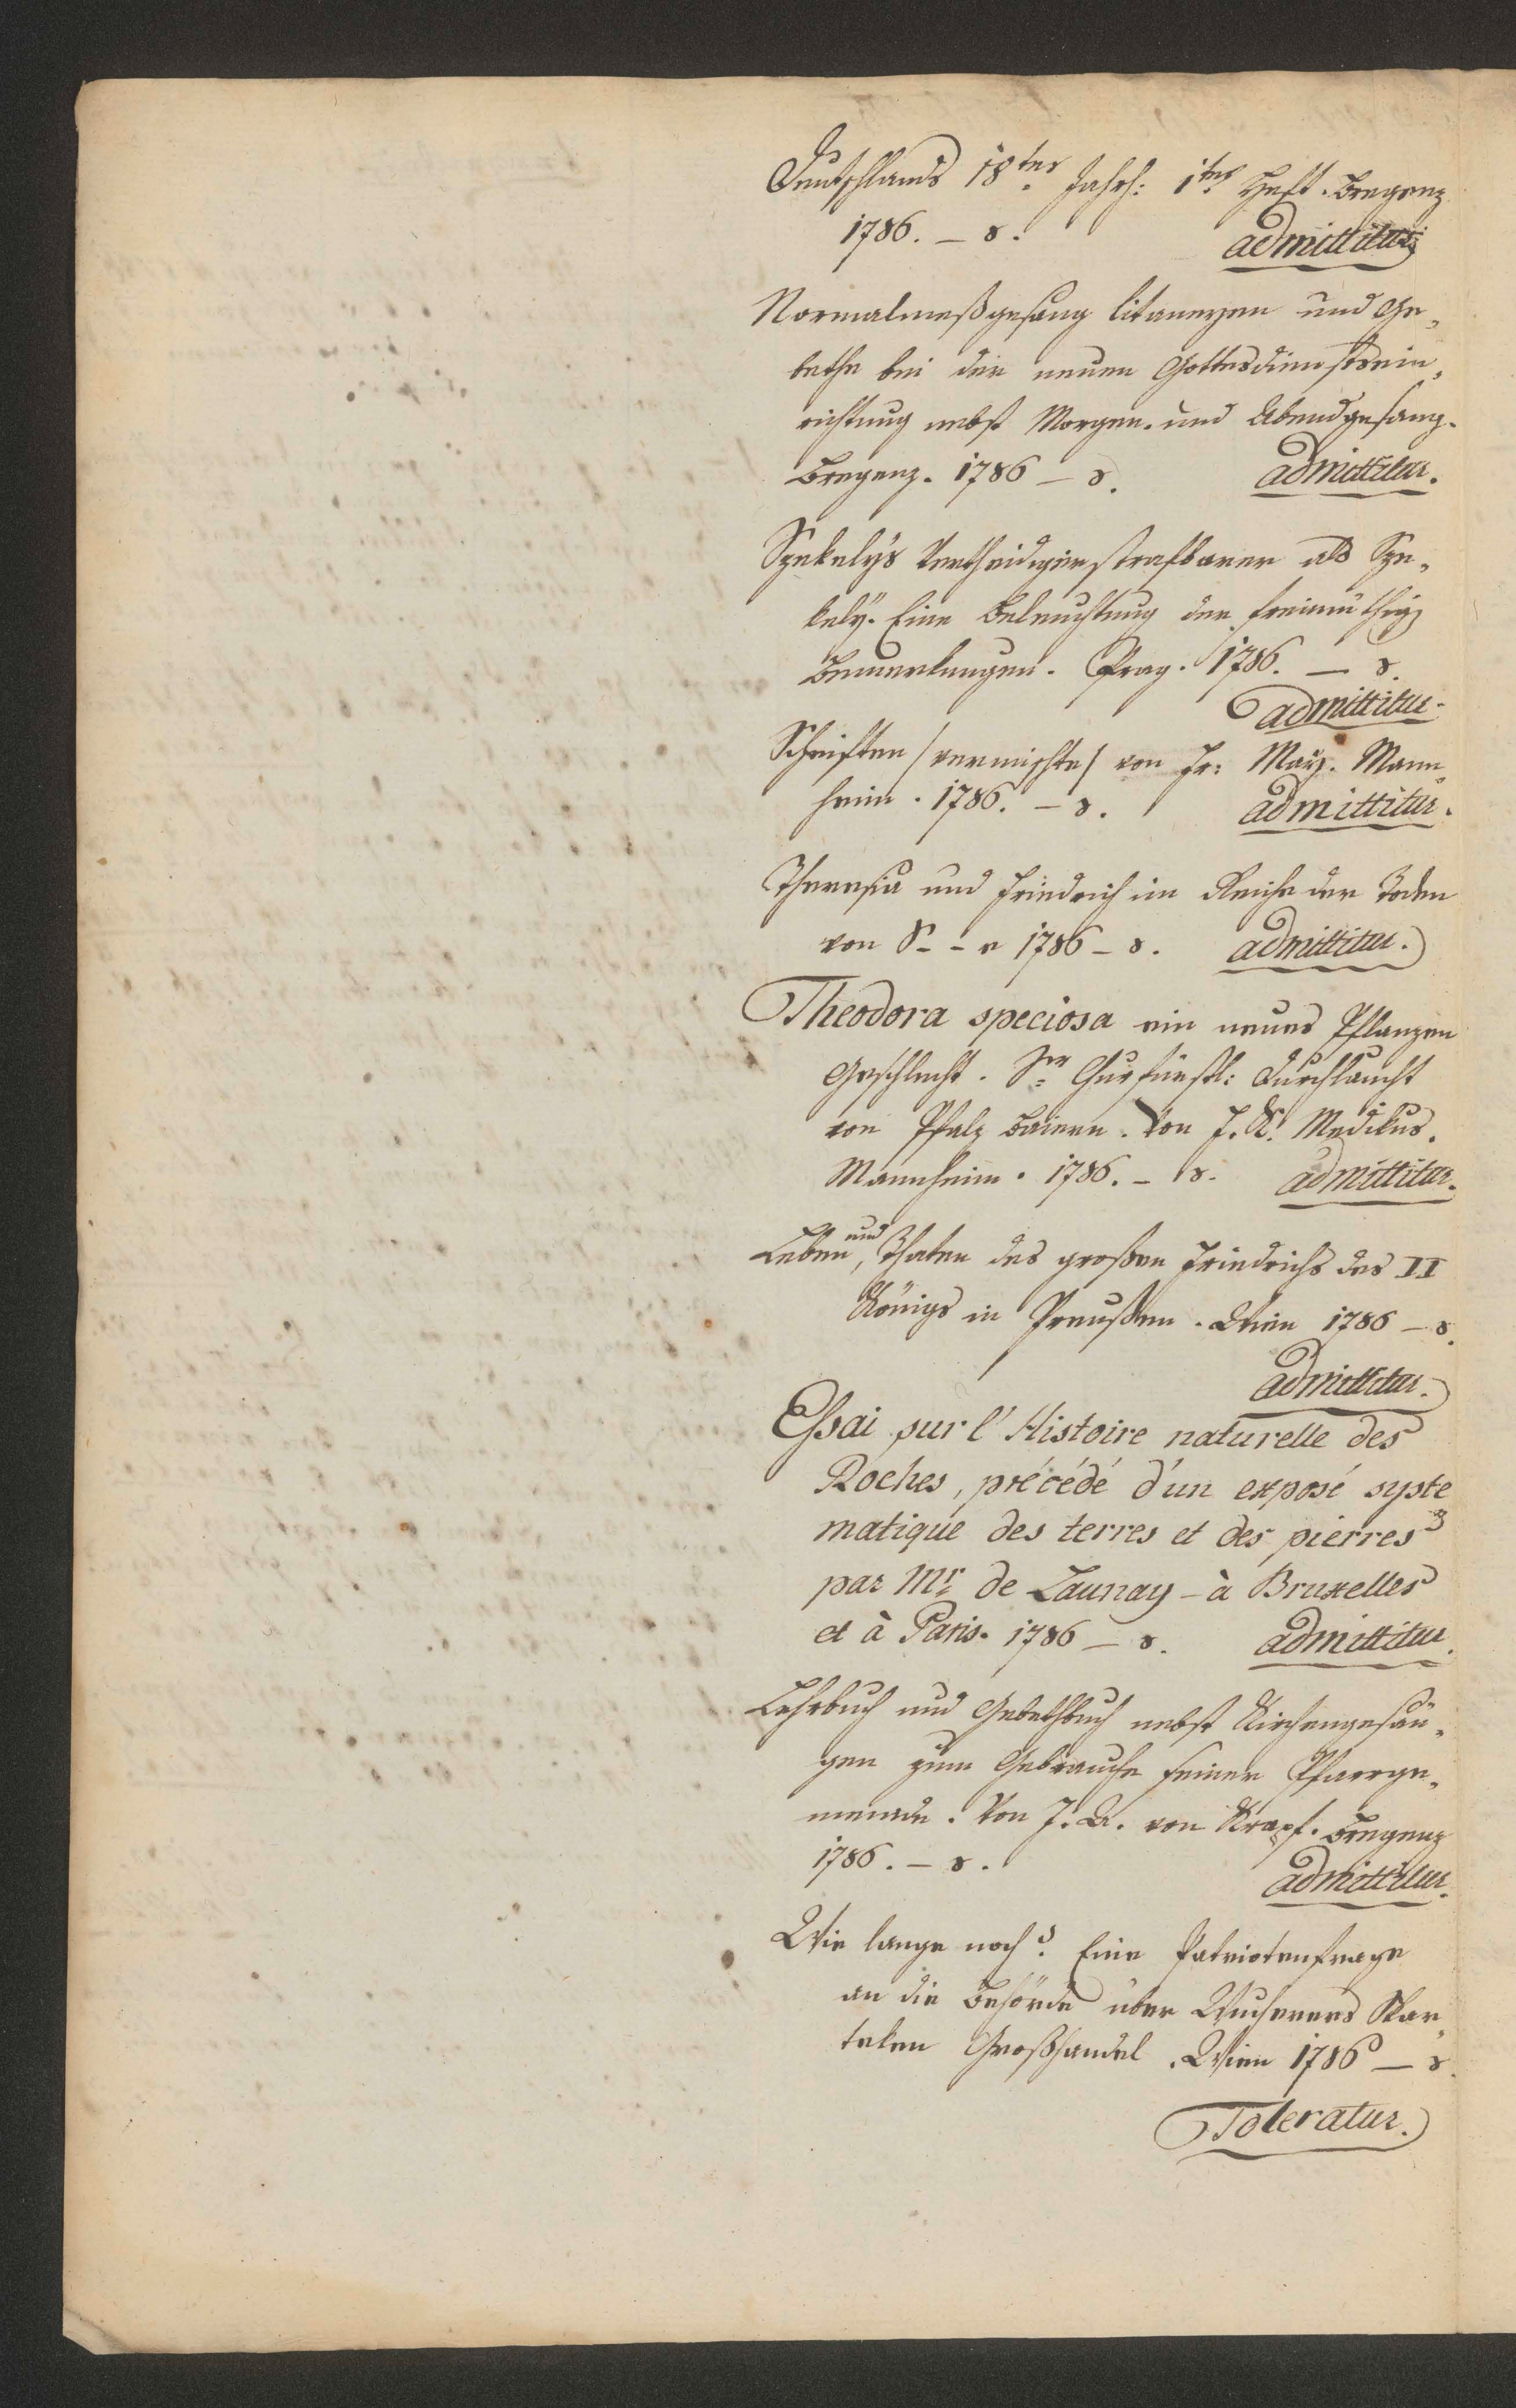 Deutschlands 18tes Jahrh: 1tes Heft. Bregenz
1786. – 8.
admittitur
Normalmeßgesang litaneyen und Ge„
bethe bei der neuen Gottesdienstsein„
richtung nebst Morgen- und Abendgesang.
Bregenz. 1786 – 8.
admittitur.
Szekelys Vertheidiger strafbarer als Sze„
kely. Eine Beleuchtung der freimüthig
Bemerkungen. Prag. 1786. – 8.
admittitur.
Schriften /vermischte/ von Fr: May. Mann„
heim. 1786. – 8.
admittitur.
Theresia und Friedrich im Reiche der Toden
von S- - r 1786 – 8. admittitur.
Theodora speciosa ein neues Pflanzen
Geschlecht. Sr Churfürstl: Durchlaucht
von Pfalz Baiern. Von F. K. Medikus.
Mannheim. 1786. – 8. admittitur.
Leben, und Thaten des großen Friedrichs des II
Königs in Preußen. Wien 1786 – 8.
admittitur.
Essai sur l'Histoire naturelle des
Roches, précédé d'un exposé syste
matique des terres et des pierres
par Mr de Launay – à Bruxelles
et à Paris. 1786 – 8. admittitur.
Lehrbuch und Gebethbuch nebst Kirchengesän„
gen zum Gebrauche seiner Pfarrge„
meinde. Von J. A. von Krapf. Bregenz
1786. – 8.
admittitur.
Wie lange noch? Eine Patriotenfrage
an die Behörde über Wucherers Skar„
teken Großhandel. Wien 1786 – 8.
Toleratur.